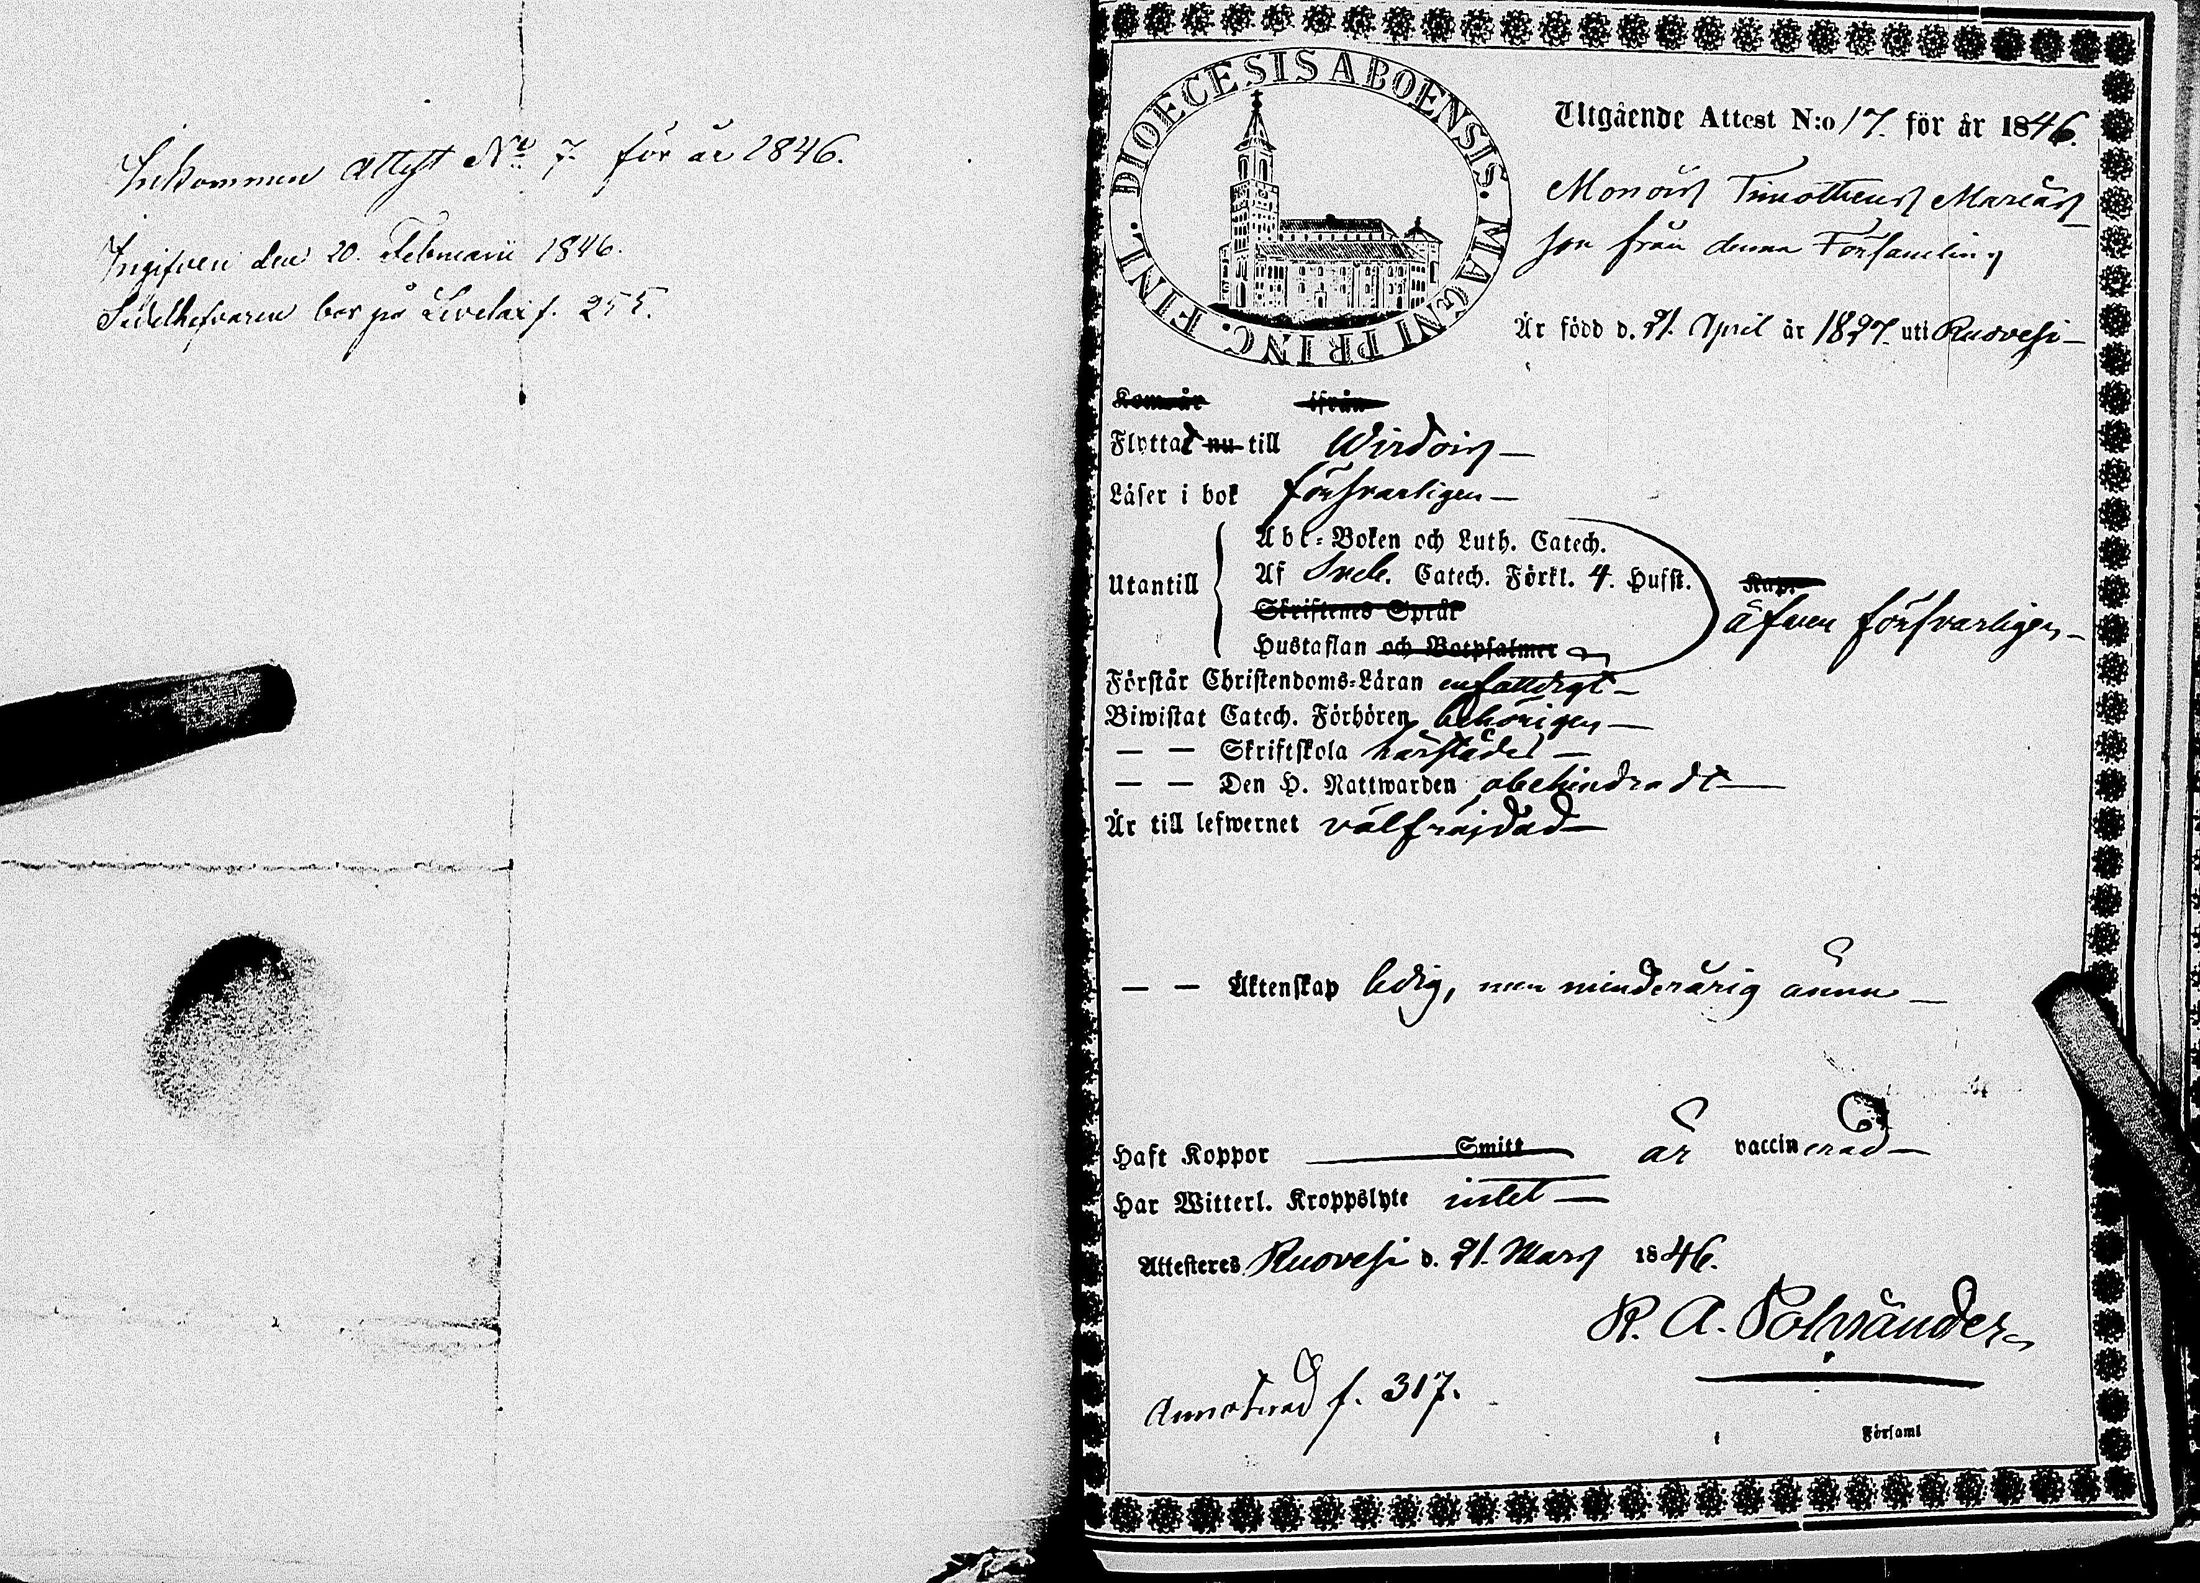 Inkommen attest No 7. för år 1846.
Ingifven den 20. Februarii 1846.
Sedelhafvaren bor på f. 255.
DIOECESIS ABOENSIS. MAGNI PRINC. FINL.
Utgående Attest N:o 17. för år 1846.
Timotheus
son från denna Församling
Är född d. 21. April år 1827. uti Ruovesi
Kom år ifrån
Flyttad nu till Wirdois
Läser i bok försvarligen
Utantill
Abc-Boken och Luth. Catech.
Af Sveb. Catech. Förkl. 4. Hufst. Kap.
Skriftenes Språk
äfven försvarligen
Hustaflan och Botpsalmer
Förstår Christendoms-Läran enfaldigt
Biwistat Catech. Förhören behörigen
— — Skriftskola härstädes
— — Den H. Nattwarden obehindradt
Är till lefwernet välfräjdad
— — Äktenskap ledig, men minderårig ännu
Haft Koppor Smitt är vaccinerad
Har Witterl. Kroppslyte intet
Attesteres Ruovesi d. 21. Mars 1846.
R. A. Polviander
Annoterad f. 317.
Församl